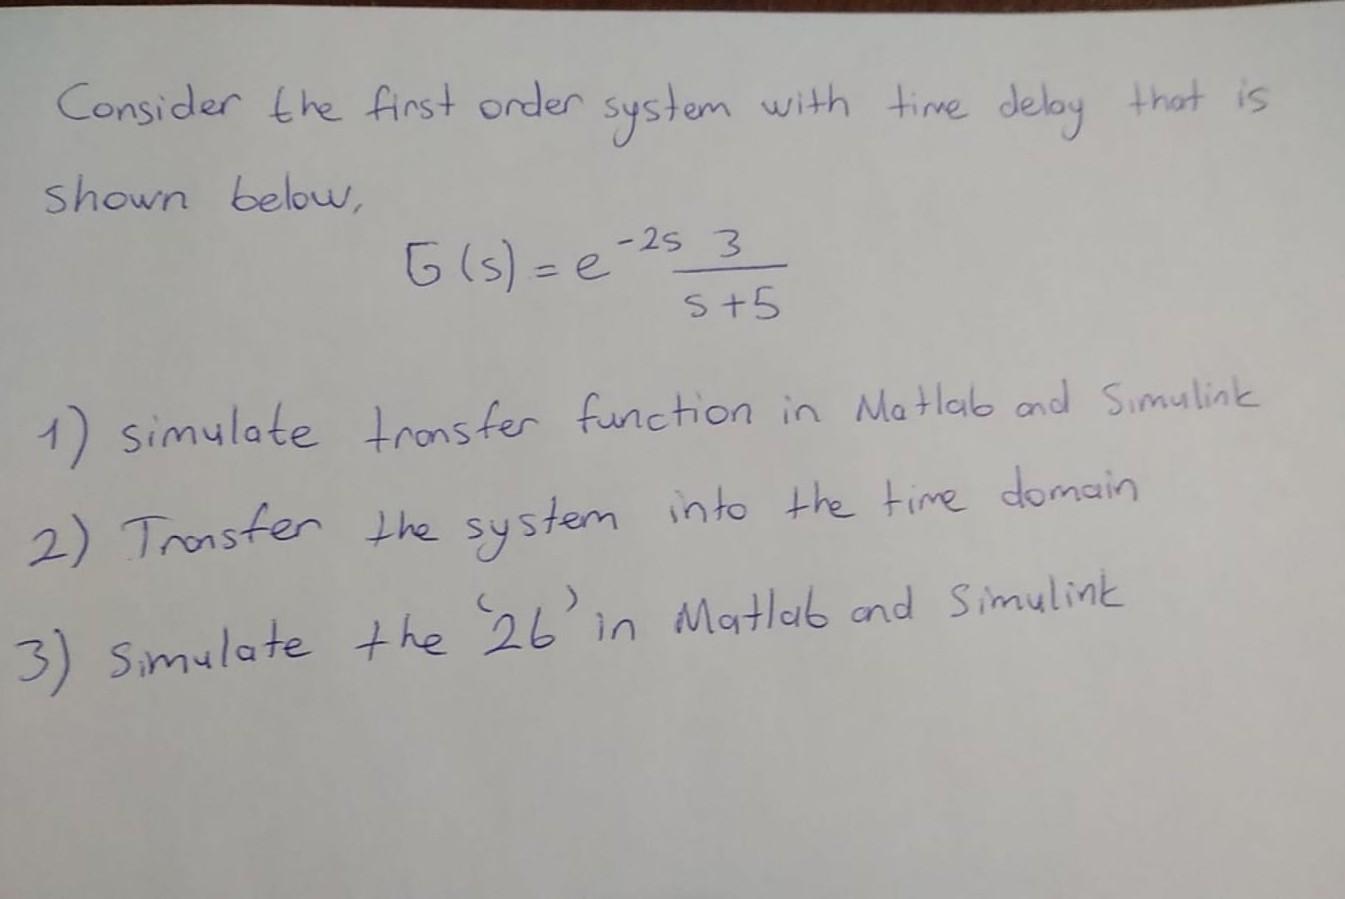 Consider the first order system with time delay that is
shown below,
G(s) = e^{-2s} \frac{3}{s+5}
1) simulate transfer function in Matlab and Simulink
2) Transfer the system into the time domain
3) Simulate the '2b' in Matlab and Simulink